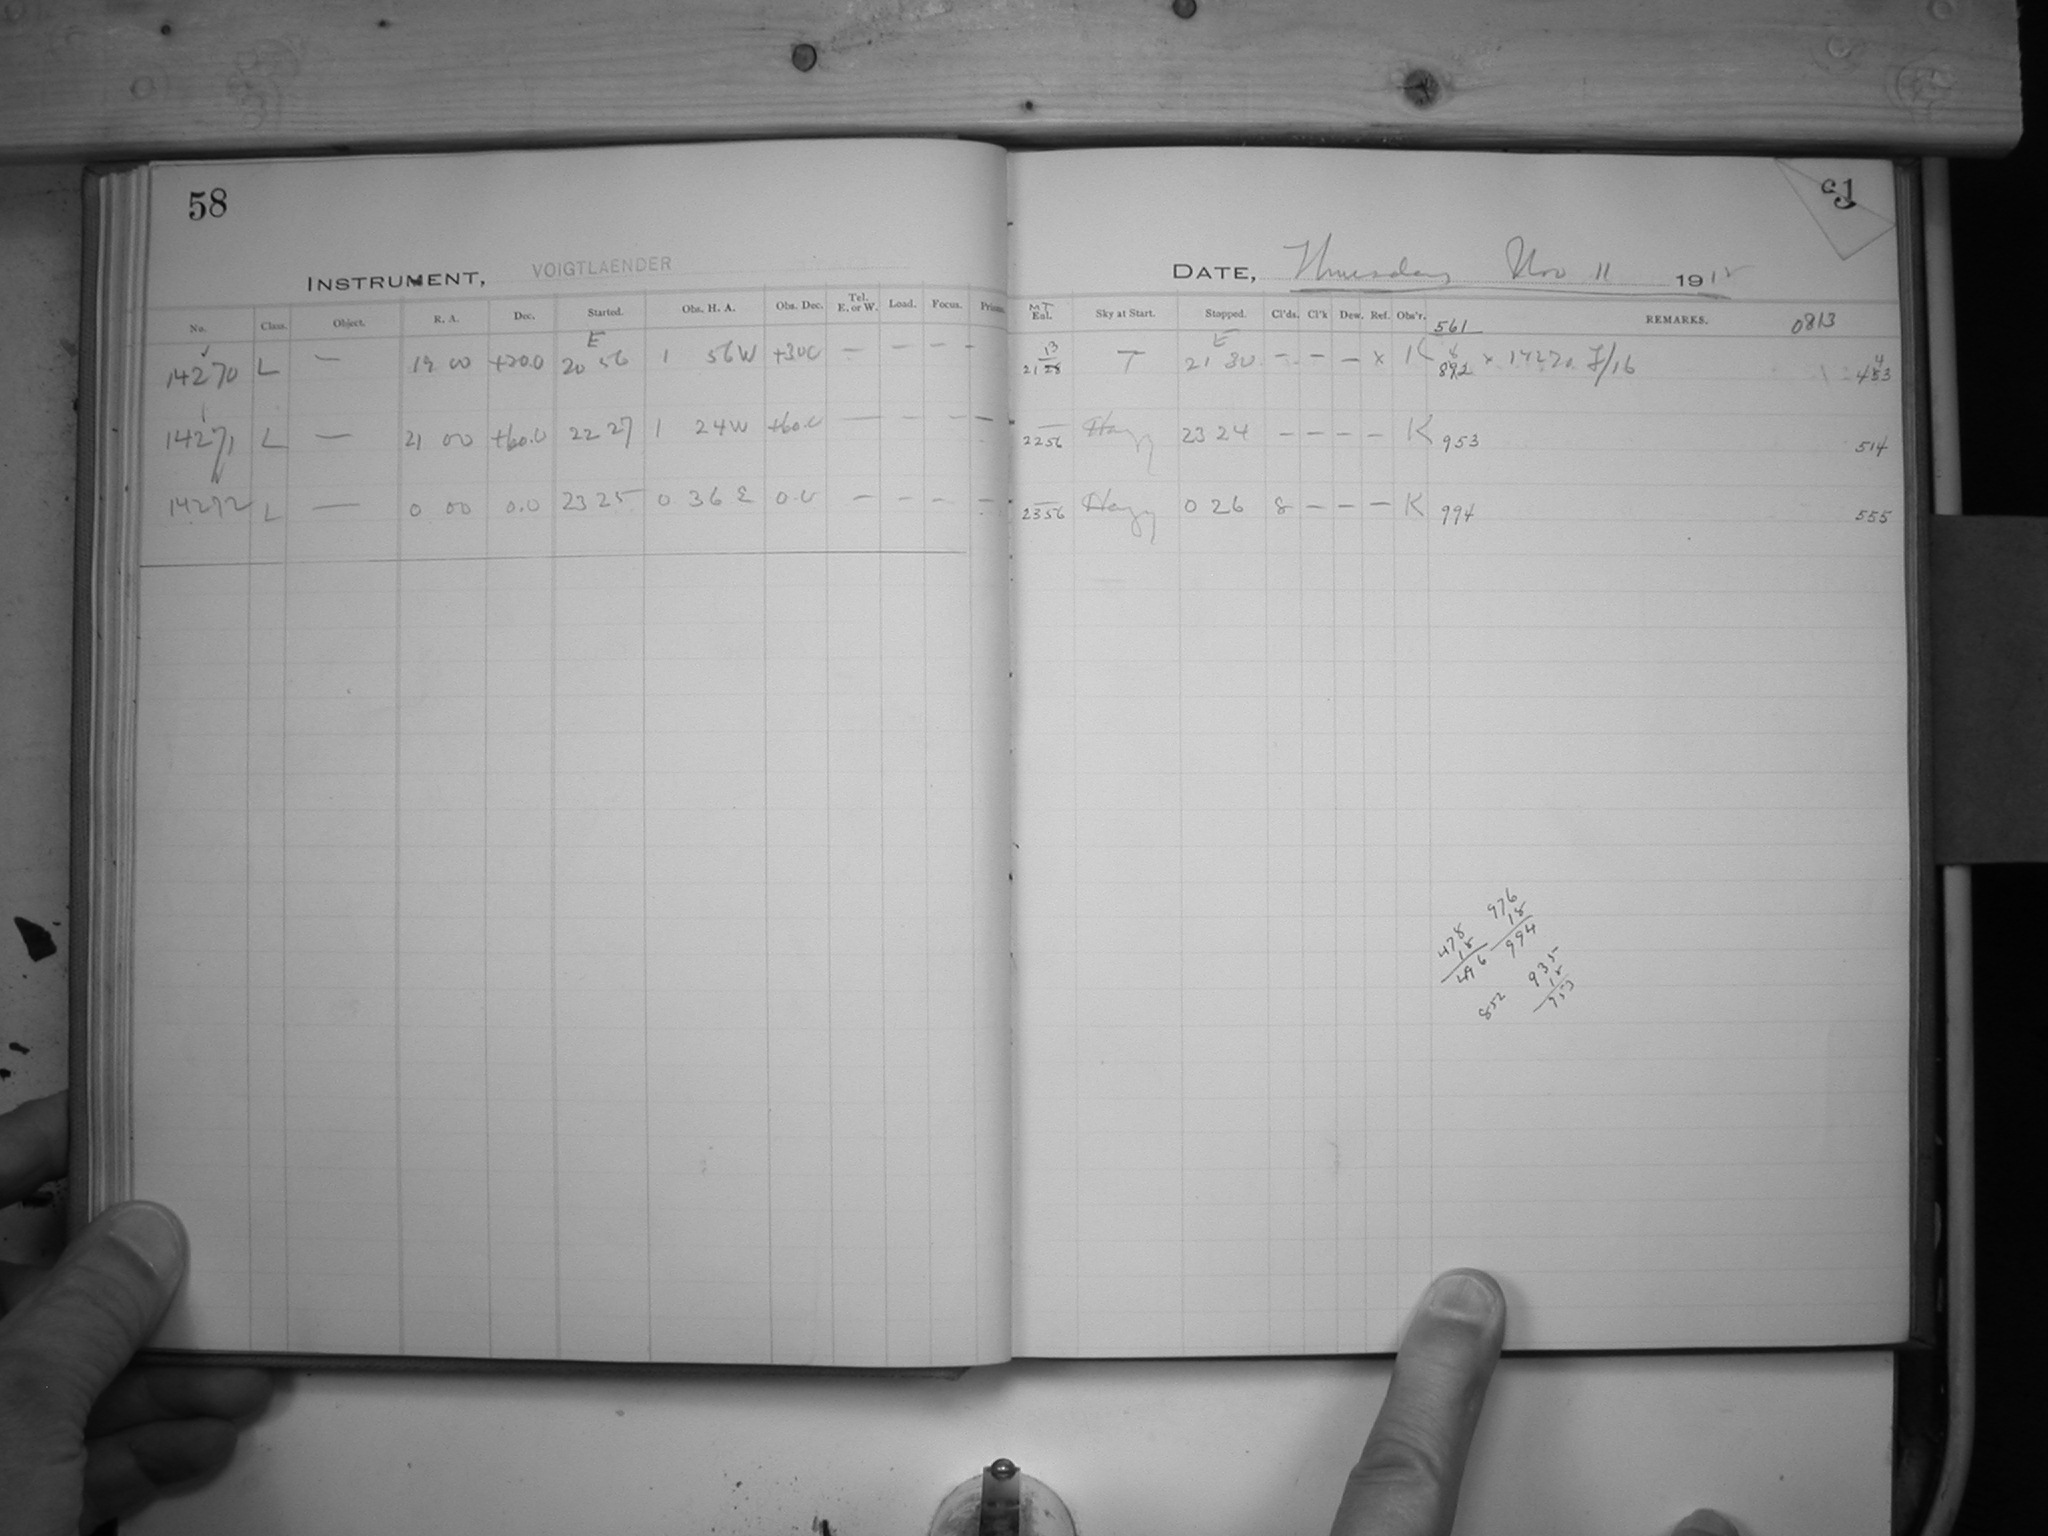 58
INSTRUMENT, VOIGTLAENDER
No. Class. Object. R. A. Dec. Started. Obs. H. A. Obs. Dec. Tel. E. or W. Load. Focus.
E
14270 L — 19 00 +30.0 20 56 1 56W +30.0 — — — -
14271 L — 21 00 +60.0 22 27 1 24W +60.0 — — - —
14272 L — 0 00 0.0 23 25 0 36 E 0.0 — - — —
DATE, Thursday Nov 11 1915
Sky at Start. Stopped. Cl'ds. Cl'k Dew. Ref. Obs'r. 561 REMARKS. 0813
E
13
21 28 T 21 30 — — — x K 892 x 14270 F/16 453
22 56 Hazy 23 24 — — — — K 953 514
23 56 Hazy 0 26 8 — — — K 994 555
976
18
994
478
18
496
935
18
953
852